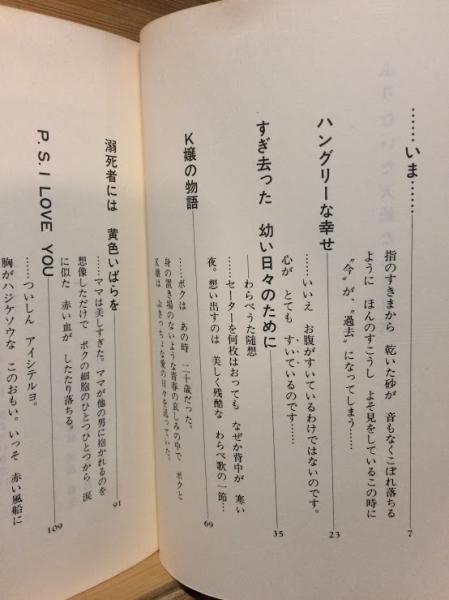 ……いま……
指のすきまから 乾いた砂が 音もなくこぼれ落ちる
ように ほんのすこうし よそ見をしているこの時に
“今”が、“過去”になってしまう……
7
ハングリーな幸せ
……いいえ お腹がすいているわけではないのです。
心が とても すいているのです……
23
すぎ去った 幼い日々のために
――わらべうた随想
……セーターを何枚はおっても なぜか背中が 寒い
夜。想い出すのは 美しく残酷な わらべ歌の一節…
35
K嬢の物語
……ボクは あの時 二十歳だった。
身の置き場のないような青春の哀しみの中で ボクと
K嬢は ぶきっちょな愛の日々を送っていた。
69
溺死者には 黄色いばらを
……ママは美しすぎた。ママが他の男に抱かれるのを
想像しただけで ボクの細胞のひとつひとつから 涙
に似た 赤い血が したたり落ちる。
91
P.S.I LOVE YOU
……ついしん アイシテルヨ。
胸がハジケソウな このおもい。いっそ 赤い風船に
109